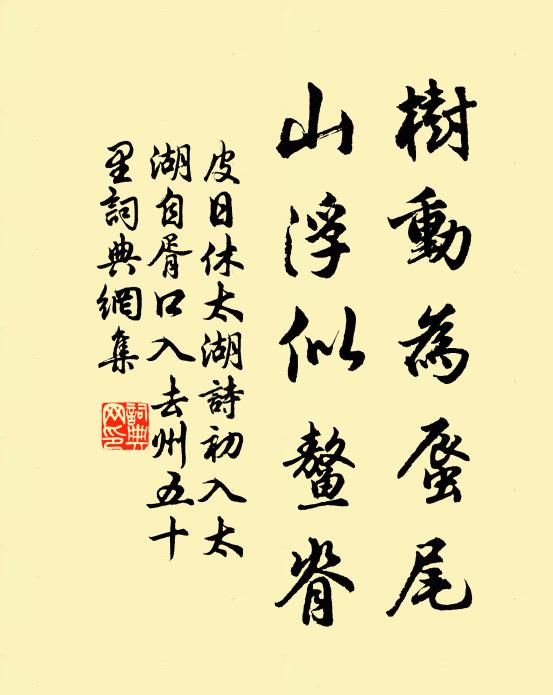 樹動為蜃尾
山浮似鼇脊
皮日休太湖詩初入太
湖自胥口入去州五十
里詞典網集
詞典
网印